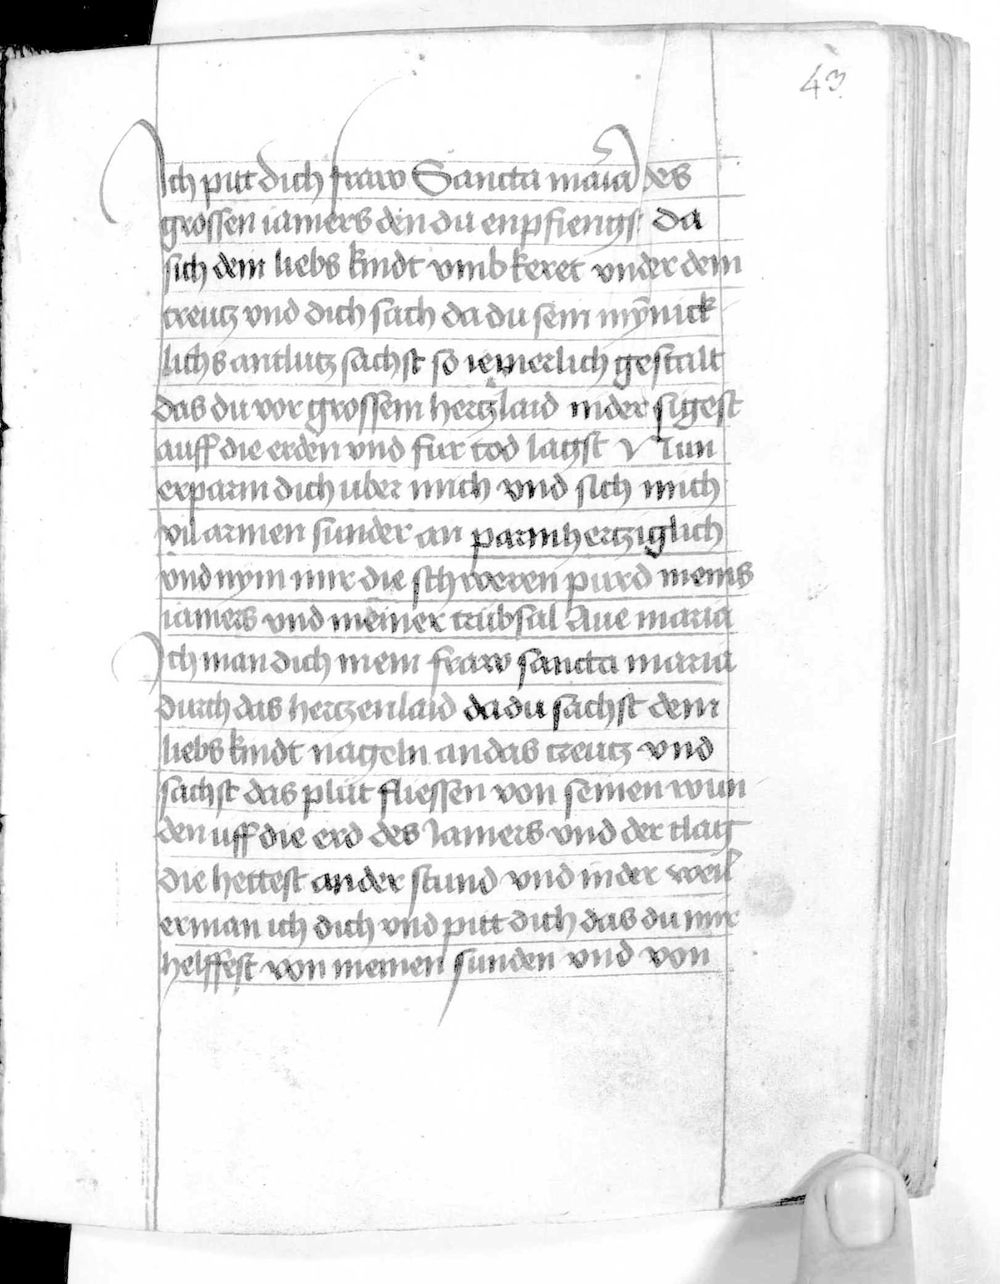 43
Ich pitt dich fraw Sancta maria des
grossen iamers den du enpfiengst da
sich dein liebs kindt vmb keret vnder dem
creutz vnd dich sach da du sein mynick
lichs antlutz sachst so iemerlich gestalt
das du vor grossem hertzlaid nider sigest
auff die erden vnd fur tod lagst Nun
erparm dich uber mich vnd sich mich
vil armen sunder an parmhertziglich
vnd nym mir die schweren purd meins
iamers vnd meiner trubsal Aue maria
Ich man dich mein fraw sancta maria
durch das hertzenlaid da du sachst dein
liebs kindt nageln an das creutz vnd
sachst das plut fliessen von seinen wun
den uff die erd des Jamers vnd der clag
die hettest an der stund vnd in der weil
erman ich dich vnd pitt dich das du mir
helffest von meinen sunden vnd von